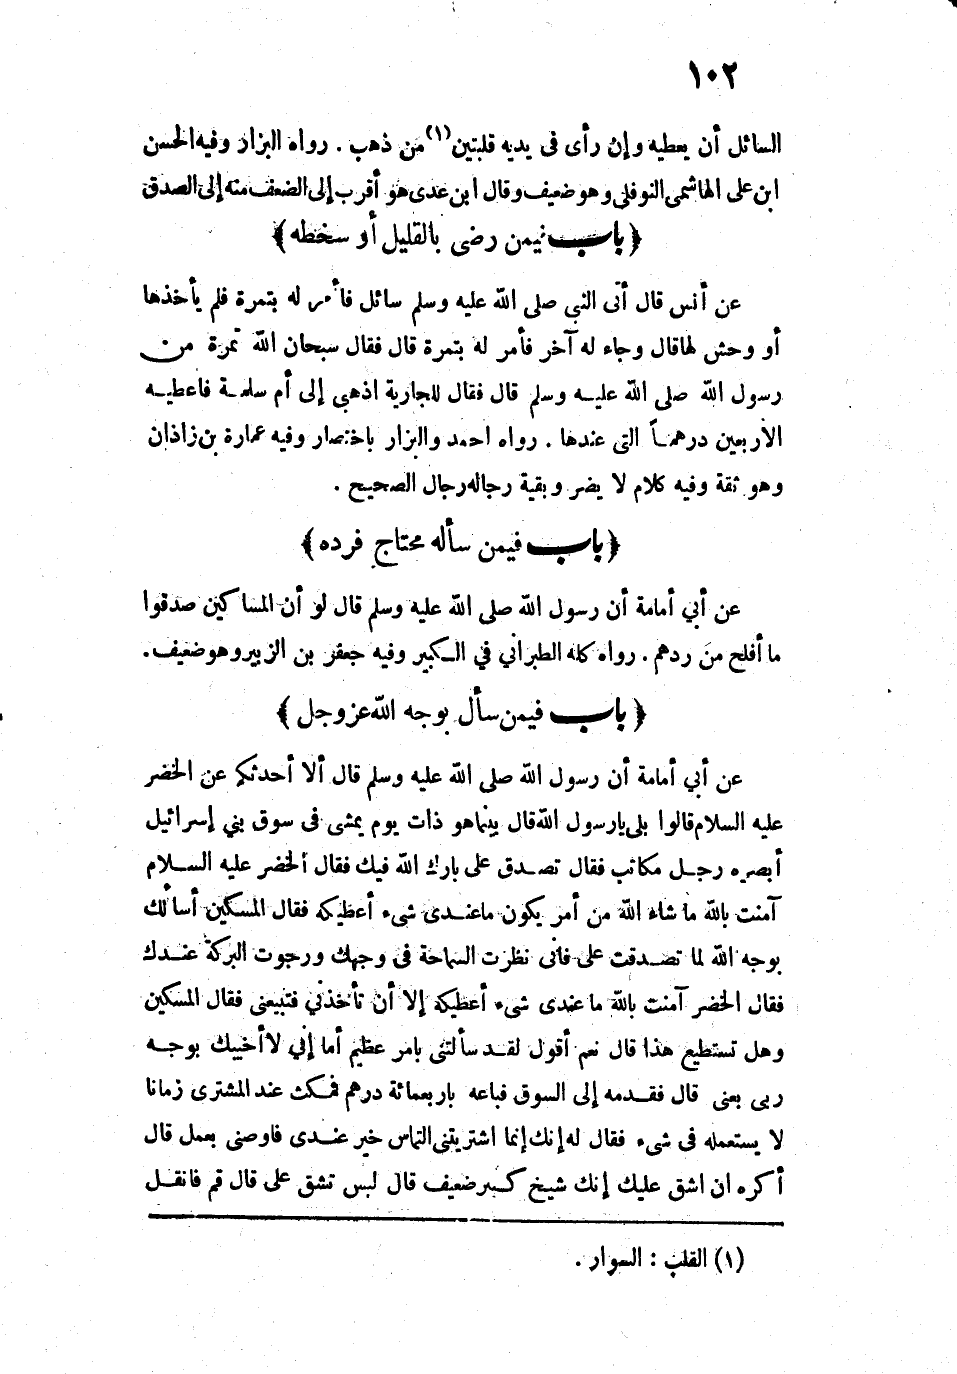 ١٠٢
السائل أن يعطيه وإن رأى فى يديه قلبتين(١) من ذهب . رواه البزار وفيه الحسن
ابن على الهاشمى النوفلى وهو ضعيف وقال ابن عدى هو أقرب إلى الضعف منه إلى الصدق
﴿ باب فيمن رضى بالقليل أو سخطه ﴾
عن أنس قال أتى النبى صلى الله عليه وسلم سائل فأمر له بتمرة فلم يأخذها
أو وحش لها قال وجاء له آخر فأمر له بتمرة قال فقال سبحان الله تمرة من
رسول الله صلى الله عليه وسلم قال فقال للجارية اذهبى إلى أم سلمة فاعطيه
الاربعين درهماً التى عندها . رواه احمد والبزار باختصار وفيه عمارة بن زاذان
وهو ثقة وفيه كلام لا يضر وبقية رجاله رجال الصحيح .
﴿ باب فيمن سأله محتاج فرده ﴾
عن أبي أمامة أن رسول الله صلى الله عليه وسلم قال لو أن المساكين صدقوا
ما أفلح من ردهم . رواه كله الطبراني في الكبير وفيه جعفر بن الزبير وهو ضعيف .
﴿ باب فيمن سأل بوجه الله عز وجل ﴾
عن أبي أمامة أن رسول الله صلى الله عليه وسلم قال ألا أحدثكم عن الخضر
عليه السلام قالوا بلى يا رسول الله قال بينما هو ذات يوم يمشى فى سوق بني إسرائيل
أبصره رجل مكاتب فقال تصدق على بارك الله فيك فقال الخضر عليه السلام
آمنت بالله ما شاء الله من أمر يكون ما عندى شىء أعطيكه فقال المسكين أسألك
بوجه الله لما تصدقت على فانى نظرت السماحة فى وجهك ورجوت البركة عندك
فقال الخضر آمنت بالله ما عندى شىء أعطيكه إلا أن تأخذني فتبيعنى فقال المسكين
وهل تستطيع هذا قال نعم أقول لقد سألتنى بامر عظيم أما إني لا أخيبك بوجه
ربى بعنى قال فقدمه إلى السوق فباعه باربعمائة درهم فمكث عند المشترى زمانا
لا يستعمله فى شىء فقال له إنك إنما اشتريتنى التماس خير عندى فاوصنى بعمل قال
أكره ان اشق عليك إنك شيخ كبير ضعيف قال ليس تشق على قال قم فانقل
(١) القلب : السوار .